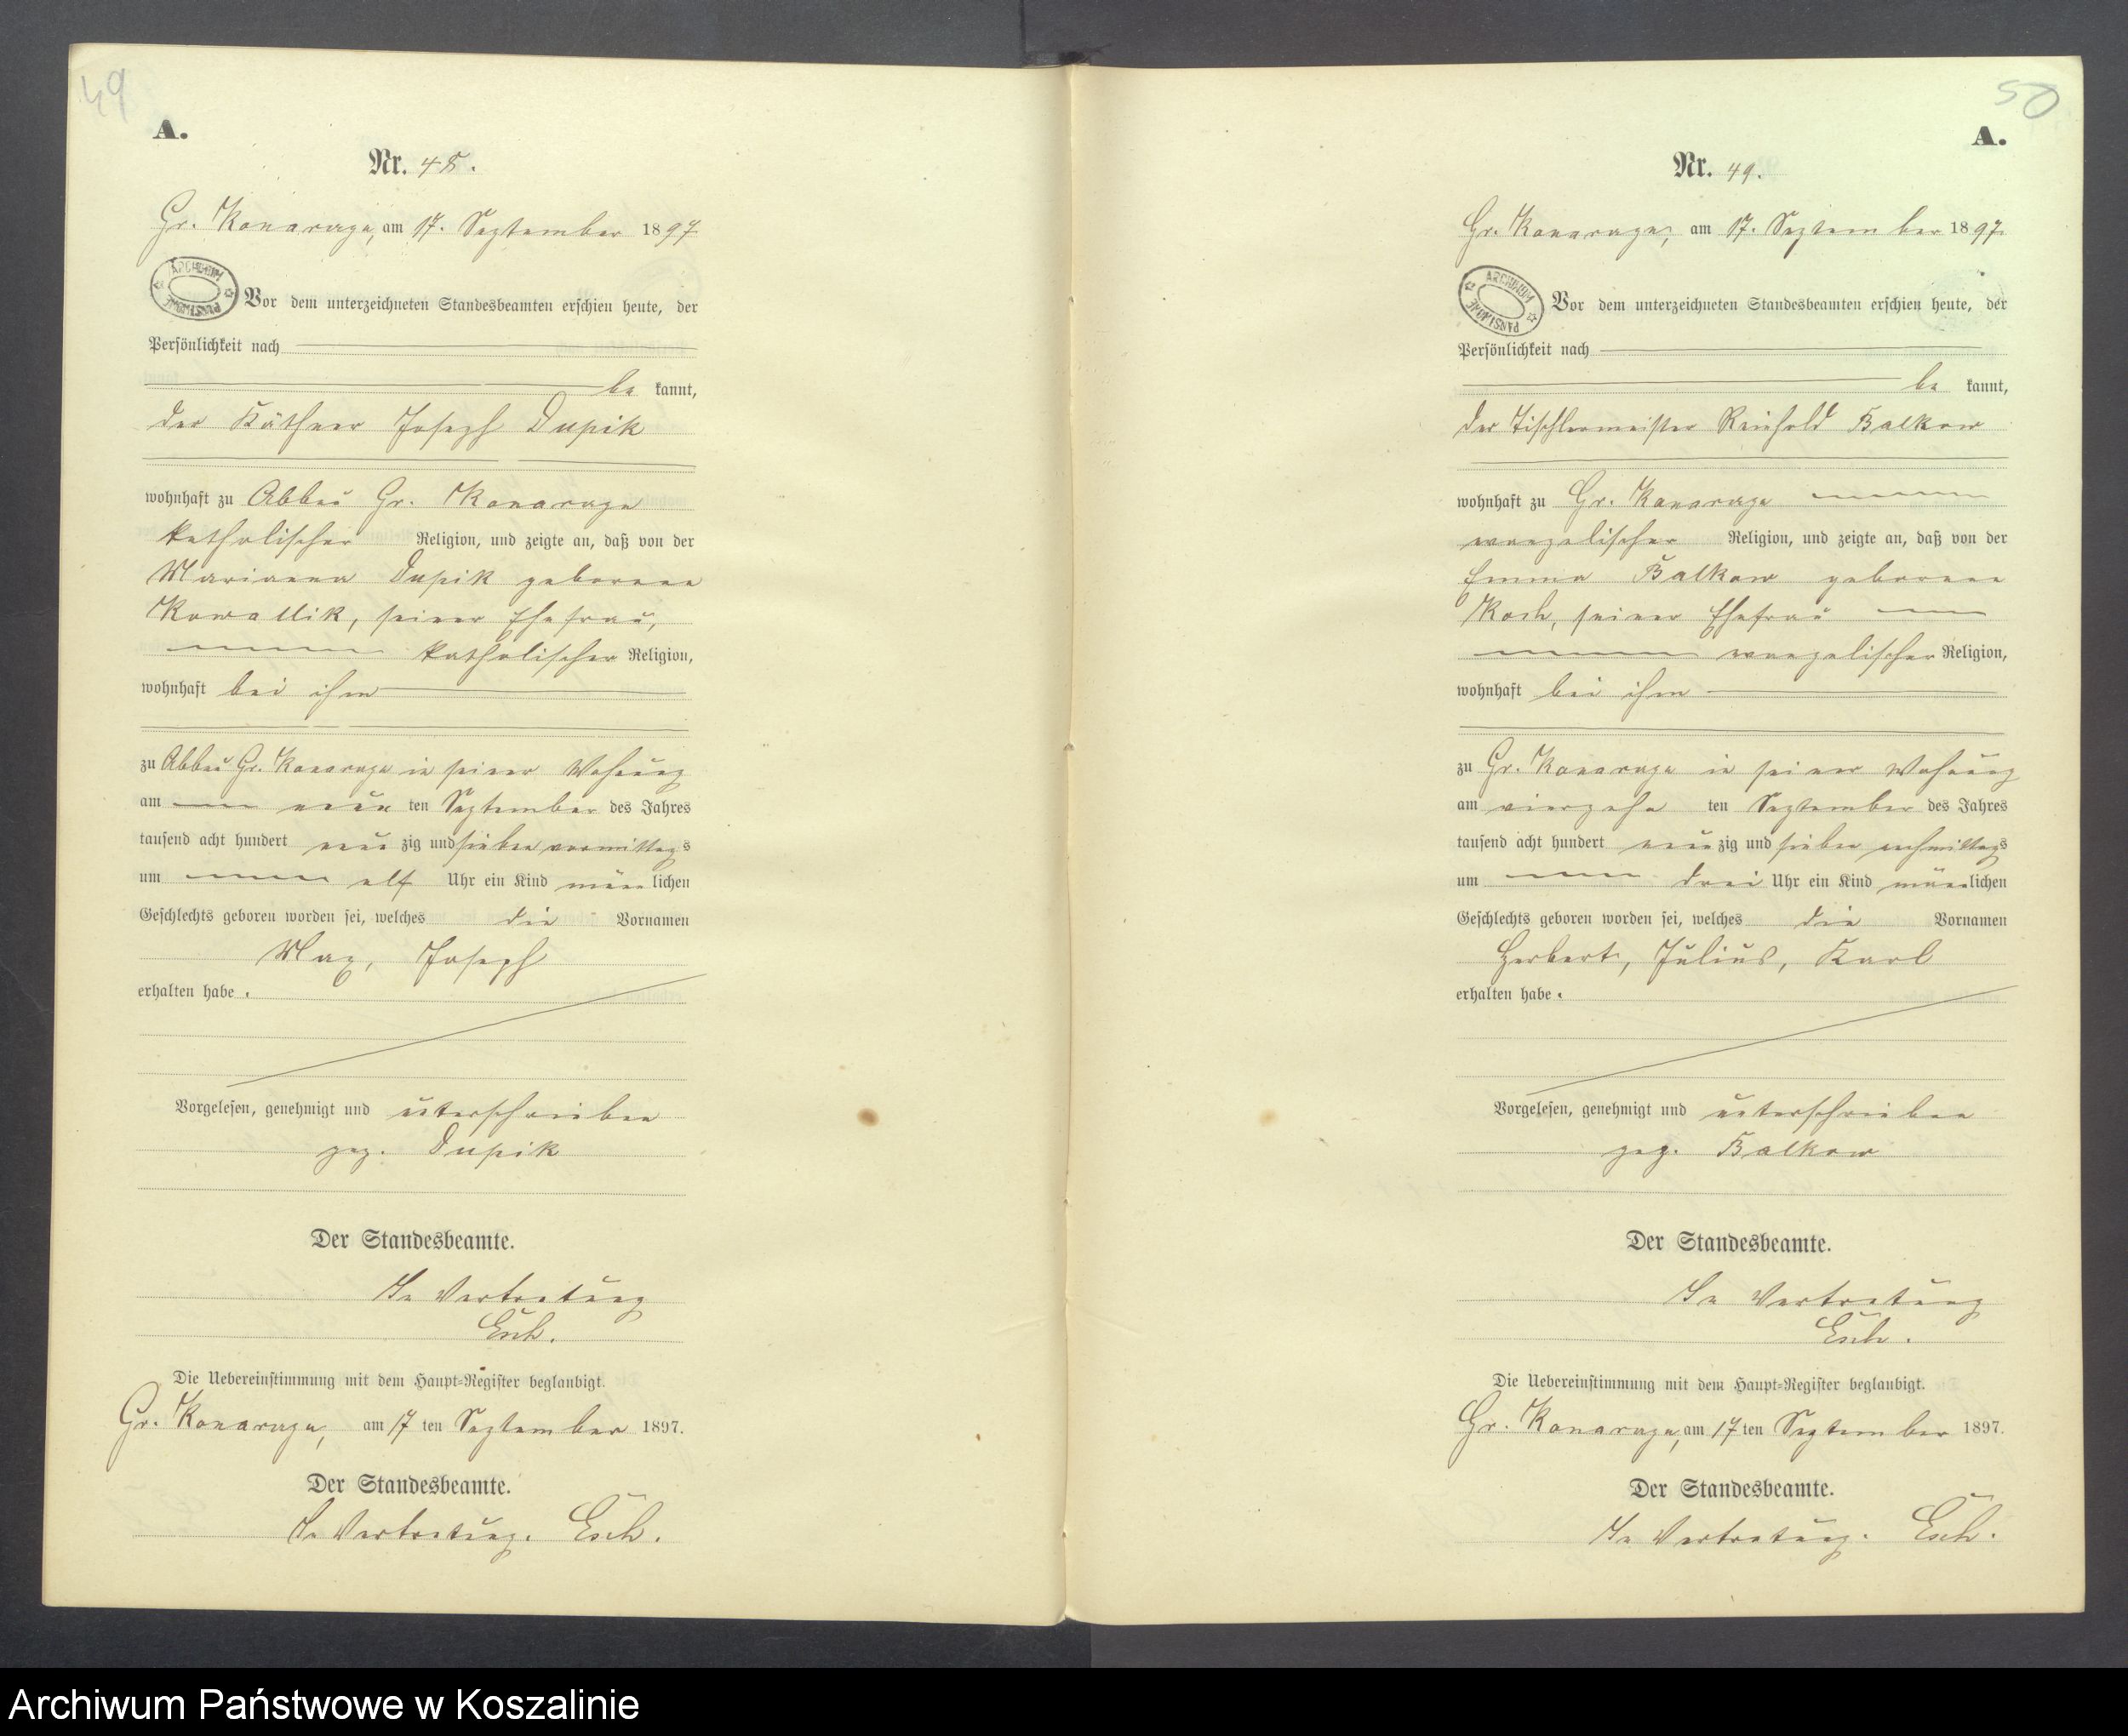 49
A.
Nr. 48.
Gr. Konarczyn, am 17. September 1897
ARCHIWUM PAŃSTWOWE
Vor dem unterzeichneten Standesbeamten erschien heute, der
Persönlichkeit nach
be kannt,
der Käthner Joseph Dupik
wohnhaft zu Abbau Gr. Konarczyn
katholischer Religion, und zeigte an, daß von der
Marianna Dupik geborene
Kowallik, seiner Ehefrau,
katholischer Religion,
wohnhaft bei ihm
zu Abbau Gr. Konarczyn in seiner Wohnung
am neun ten September des Jahres
tausend acht hundert neun zig und sieben vormittags
um elf Uhr ein Kind männlichen
Geschlechts geboren worden sei, welches die Vornamen
Max, Joseph
erhalten habe.
Vorgelesen, genehmigt und unterschrieben
gez. Dupik
Der Standesbeamte.
In Vertretung
Esch.
Die Uebereinstimmung mit dem Haupt-Register beglaubigt.
Gr. Konarczyn, am 17 ten September 1897.
Der Standesbeamte.
In Vertretung. Esch.
50
A.
Nr. 49.
Gr. Konarczyn, am 17. September 1897.
ARCHIWUM PAŃSTWOWE
Vor dem unterzeichneten Standesbeamten erschien heute, der
Persönlichkeit nach
be kannt,
der Tischlermeister Reinhold Balkow
wohnhaft zu Gr. Konarczyn
evangelischer Religion, und zeigte an, daß von der
Emma Balkow geborene
Koch, seiner Ehefrau
evangelischer Religion,
wohnhaft bei ihm
zu Gr. Konarczyn in seiner Wohnung
am vierzehn ten September des Jahres
tausend acht hundert neun zig und sieben nachmittags
um drei Uhr ein Kind männlichen
Geschlechts geboren worden sei, welches die Vornamen
Herbert, Julius, Karl
erhalten habe.
Vorgelesen, genehmigt und unterschrieben
gez. Balkow
Der Standesbeamte.
In Vertretung
Esch.
Die Uebereinstimmung mit dem Haupt-Register beglaubigt.
Gr. Konarczyn, am 17 ten September 1897.
Der Standesbeamte.
In Vertretung. Esch.
Archiwum Państwowe w Koszalinie